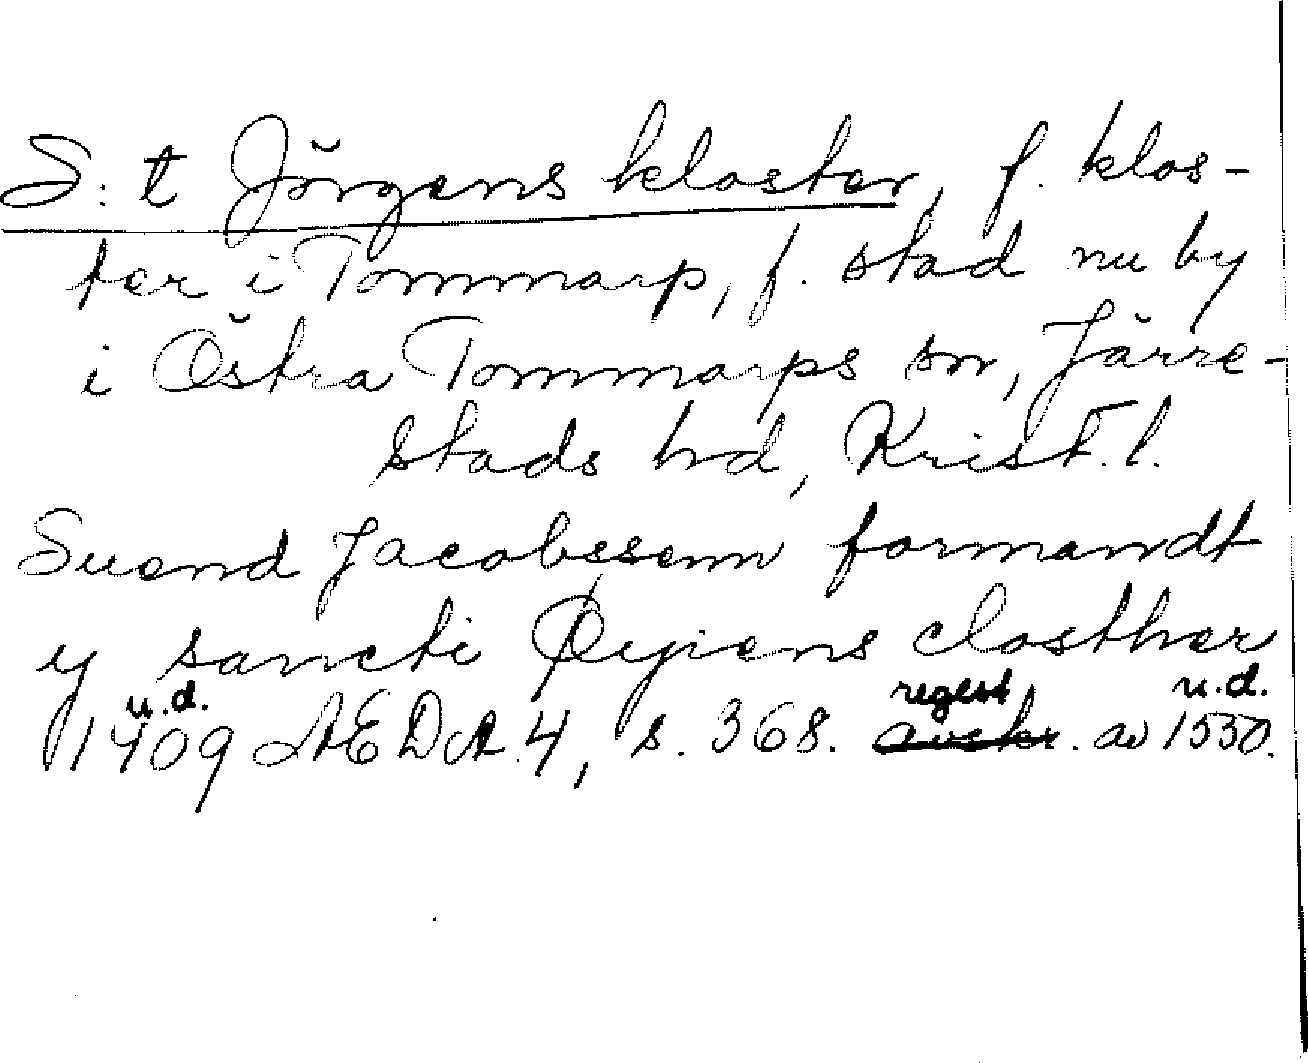 S:t Jörgens kloster, f. klos-
ter i Tommarp, f. stad nu by
i Östra Tommarps sn, Järre-
stads hd, Krist. l.
Suend Jacobssenn formandt
y sancti Øryiens closther
u.d. regest u.d.
1409 ÆDA 4, s. 368. avskr. av 1530.